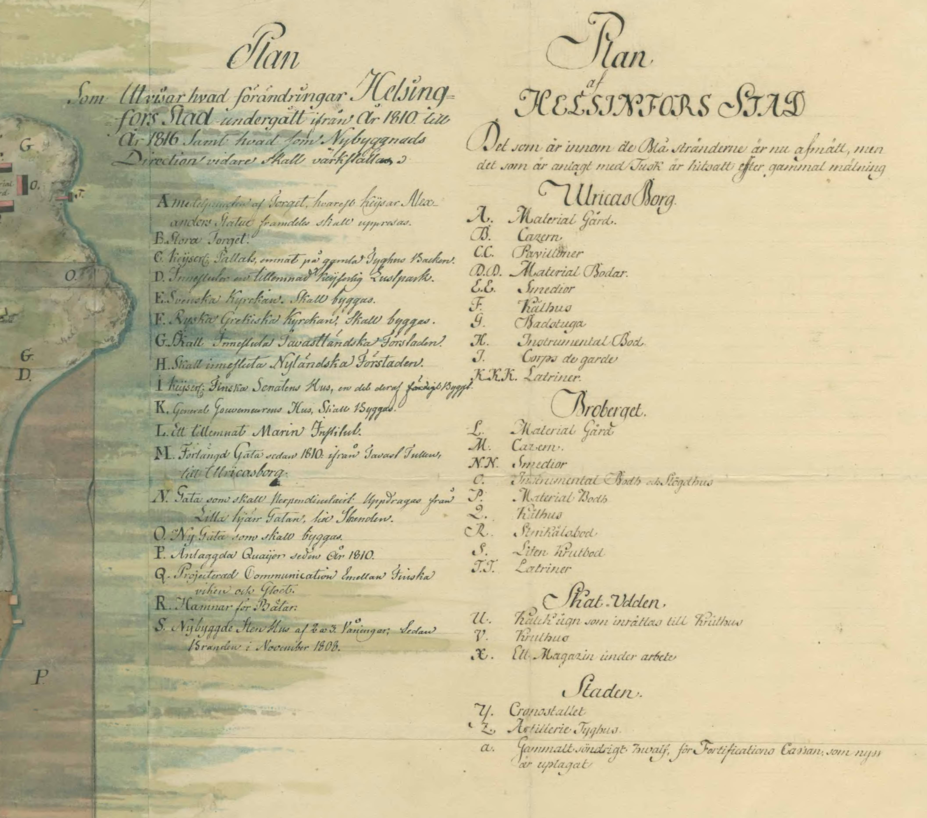 Plan
Som Utvisar hvad förändringar Helsing-
fors Stad undergått ifrån År 1810 till
År 1816 Samt hvad som Nybyggnads
Direction vidare skall värkställa
A af Torget, hvarest Alex-
anders Statue framdeles skall uppresas.
B. Stora Torget.
C. Pallats, ämnat på gamla Tyghus Backen.
D. en tillemnad Lustpark.
E. Svenska Kyrckan, Skall byggas.
F. Ryska Grekiska Kyrckan, Skall bygges.
G. Skall Innefluta Tavastländska Förstaden.
H. Skall innefluta Nyländska Förstaden.
I Finska Senatens Hus, en del deraf färdigt Byggt.
K. General Gouverneurens Hus, Skall Byggas.
L. Ett tillemnat Marin Institut.
M. Förlängd Gata sedan 1810 ifrån Tavast Tullen,
till Ulricasborg.
N. Gata som skall Perpendiculairt Uppdragas från
Lilla Gatan, till Stranden.
O. Ny Gata som skall byggas.
P. Anlaggda Quaijer sedan År 1810.
Q. Projecterad Communication Emellan Finska
viken och Gloet.
R. Hamnar för Båtar.
S. Nybyggde Sten Hus af 2 a 3 Våningar, Sedan
Branden i November 1808.
P
G
O.
F.
O
G.
D.
Plan
af
HELSINFORS STAD
Det som är innom de Blå Stränderne är nu afmält, men
det som är anlagt med Tusk är tillsatt efter gammal mätning
Ulricas Borg.
A. Material Gård.
B. Cazern.
CC. Pavilloner
D.D. Material Bodar.
E.E. Smedior
F. Kålhus
G. Badstuga
H. Instrumental Bod
I. Corps de garde
K.K.K. Latriner.
Broberget.
L. Material Gård
M. Cazern.
N.N. Smedior
O. Instrumental Bod och Slögdhus
P. Material Bodh
Q. Kålhus
R. Stenkålsbod
S. Liten Krutbod
T.T. Latriner
Skat. Udden.
U. Kalck ugn som inrättas till Kruthus
V. Kruthus
X. Ett Magazin under arbete
Staden.
Y. Cronostallet
Z. Artillerie Tyghus.
a. Gammalt söndrigt för Fortifications Cassan, som nyss
är uptagat